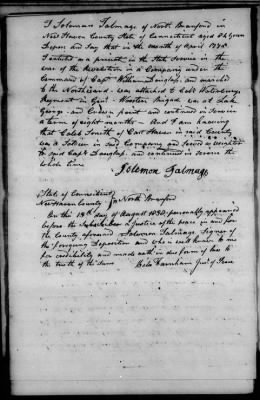 I Solomon Talmage of North Branford in
New Haven County State of Connecticut aged 84 years
Depose and Say that in the month of April 1775
I enlisted as a private in the State Service in the
war of the Revolution in a Company under the
Command of Capt William Douglass, and marched
to the Northward was attached to Colo Waterbury
Regiment in Genl Wooster Brigade was at Lake
George and Crown point and continued in Service
a term of eight months And I am knowing
that Caleb Smith of East Haven in said County
was a Soldier in said Company and Served as
to said Capt Douglass and continued in service the
whole time
Solomon Talmage
State of Connecticut
New Haven County } North Branford
On this 18th day of August 1832 personally appeared
before the Subscriber a Justice of the peace in and for
the County aforesaid Solomon Talmage Signer of
the foregoing Deposition and whom I well know to me
for credibility and made oath in due form of law to
the truth of the same Bela Farnham Just of Peace